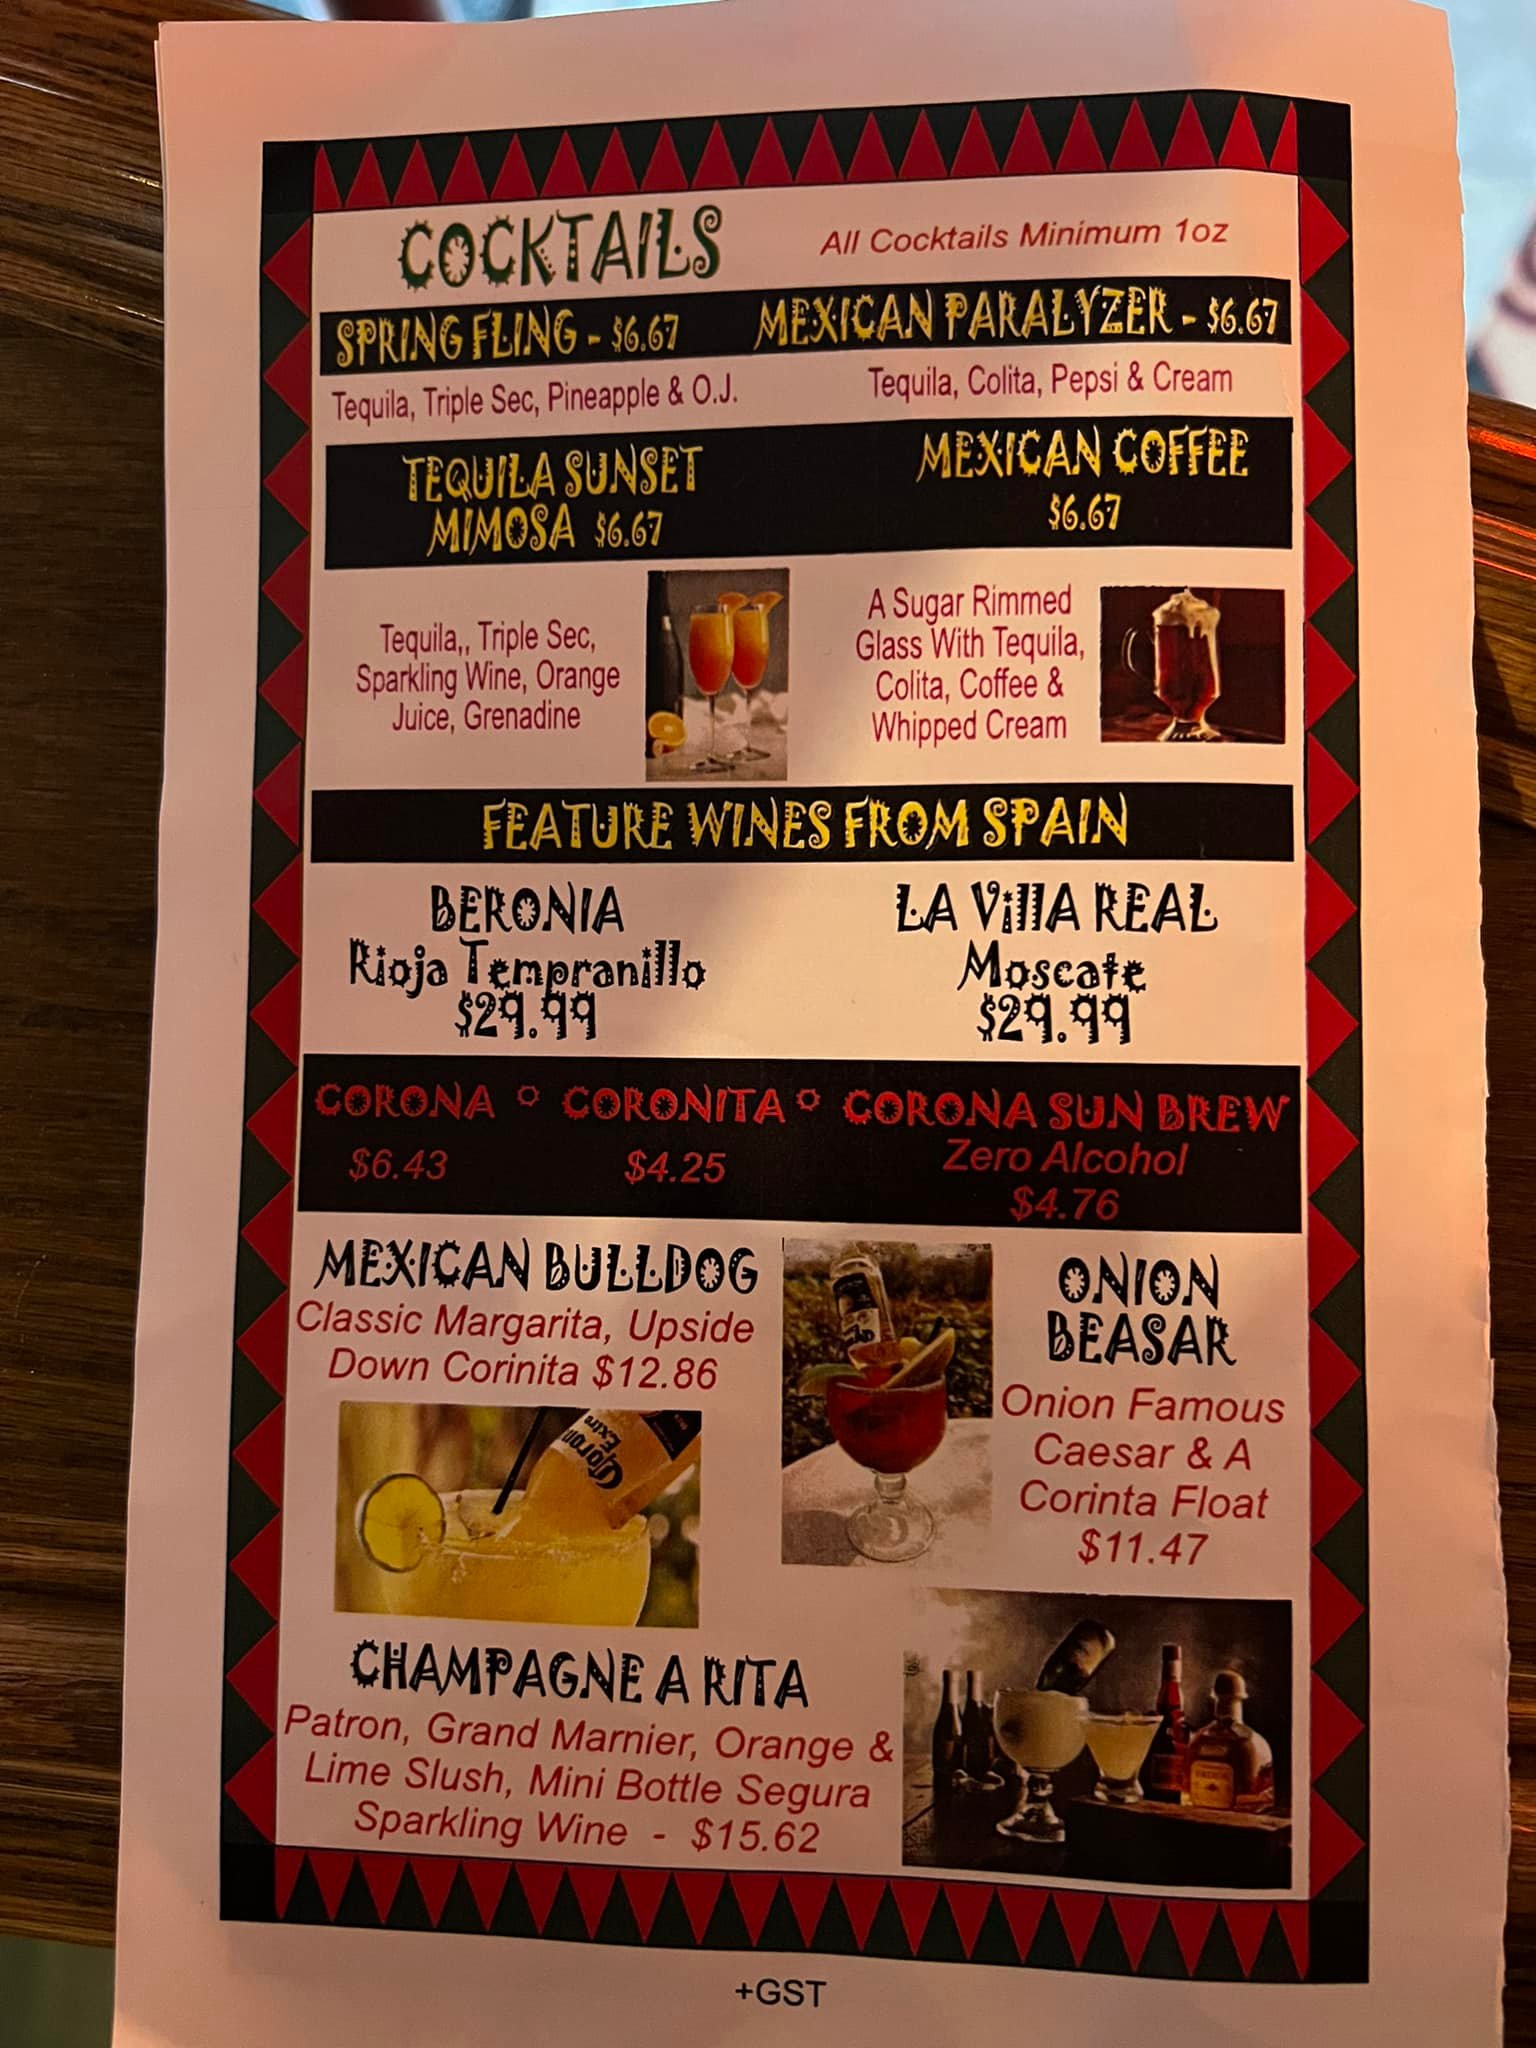 COCKTAILS
All Cocktails Minimum 1oz
SPRING FLING - $6.67
MEXICAN PARALYZER - $6.67
Tequila, Triple Sec, Pineapple & O.J.
Tequila, Colita, Pepsi & Cream
TEQUILA SUNSET
MIMOSA $6.67
MEXICAN COFFEE
$6.67
Tequila,, Triple Sec,
Sparkling Wine, Orange
Juice, Grenadine
A Sugar Rimmed
Glass With Tequila,
Colita, Coffee &
Whipped Cream
FEATURE WINES FROM SPAIN
BERONIA
Rioja Tempranillo
$29.99
LA VillA REAL
Moscate
$29.99
CORONA ° CORONITA ° CORONA SUN BREW
$6.43
$4.25
Zero Alcohol
$4.76
MEXICAN BULLDOG
Classic Margarita, Upside
Down Corinita $12.86
Corona
Extra
ONION
BEASAR
Onion Famous
Caesar & A
Corinta Float
$11.47
CHAMPAGNE A RITA
Patron, Grand Marnier, Orange &
Lime Slush, Mini Bottle Segura
Sparkling Wine - $15.62
+GST